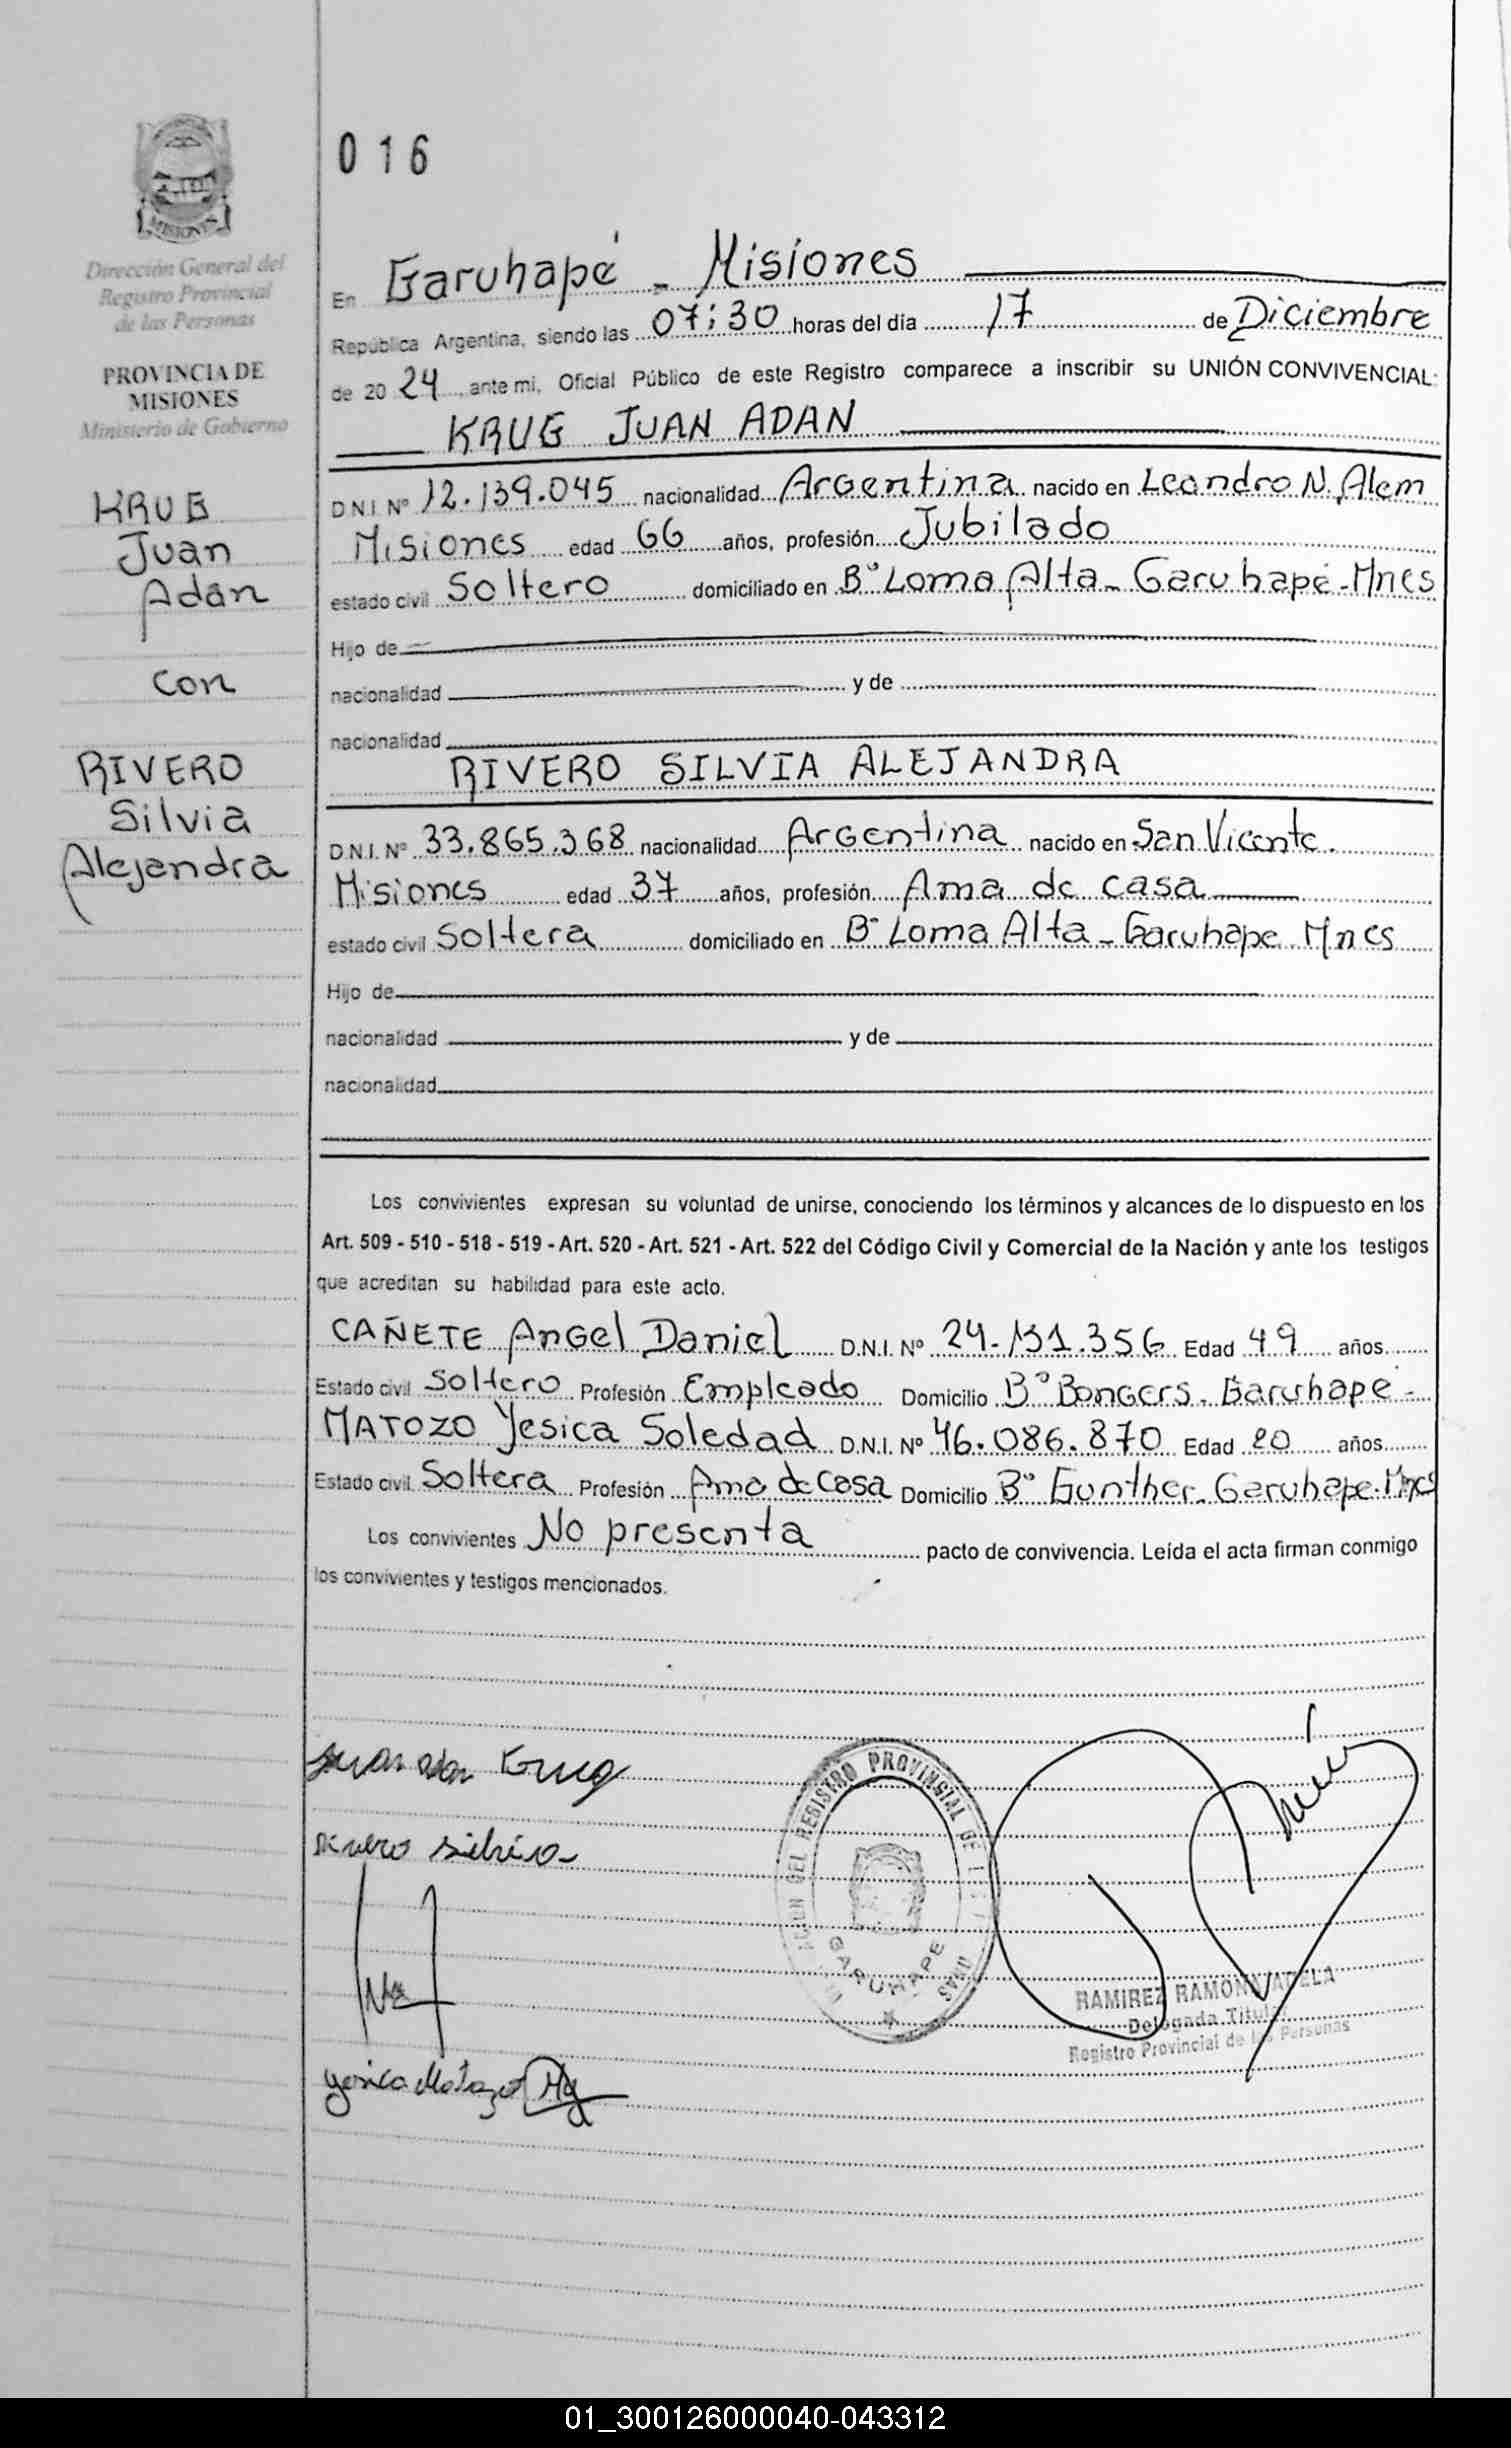 MISIONES
Dirección General del
Registro Provincial
de las Personas
PROVINCIA DE
MISIONES
Ministerio de Gobierno
KRUG
Juan
Adán
con
RIVERO
Silvia
Alejandra
016
En Garuhapé - Misiones
República Argentina, siendo las 07:30 horas del día 17 de Diciembre
de 2024, ante mi, Oficial Público de este Registro comparece a inscribir su UNIÓN CONVIVENCIAL:
KRUG JUAN ADAN
D.N.I. Nº 12.139.045 nacionalidad Argentina nacido en Leandro N. Alem
Misiones edad 66 años, profesión Jubilado
estado civil Soltero domiciliado en Bº Loma Alta - Garuhapé - Mnes
Hijo de
nacionalidad y de
nacionalidad
RIVERO SILVIA ALEJANDRA
D.N.I. Nº 33.865.368 nacionalidad Argentina nacido en San Vicente.
Misiones edad 37 años, profesión Ama de casa
estado civil Soltera domiciliado en Bº Loma Alta - Garuhape Mnes
Hijo de
nacionalidad y de
nacionalidad
Los convivientes expresan su voluntad de unirse, conociendo los términos y alcances de lo dispuesto en los
Art. 509 - 510 - 518 - 519 - Art. 520 - Art. 521 - Art. 522 del Código Civil y Comercial de la Nación y ante los testigos
que acreditan su habilidad para este acto.
CAÑETE Angel Daniel D.N.I. Nº 24.131.356 Edad 49 años
Estado civil Soltero Profesión Empleado Domicilio Bº Bongers. Garuhape -
MATOZO Yesica Soledad D.N.I. Nº 46.086.870 Edad 20 años
Estado civil Soltera Profesión Ama de Casa Domicilio Bº Gunther. Garuhape. Mnes
Los convivientes No presenta pacto de convivencia. Leída el acta firman conmigo
los convivientes y testigos mencionados.
Juan Adan Krug
Rivero Silvia
Yesica Matozo
REGISTRO PROVINCIAL DE
GARUHAPE
RAMIREZ RAMONA
Delegada Titular
Registro Provincial de las Personas
01_300126000040-043312